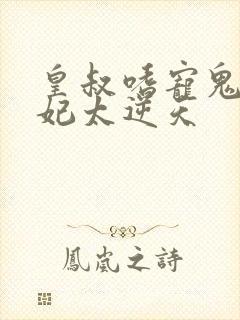 皇叔嗜寵鬼
妃太逆天
鳳嵐之詩